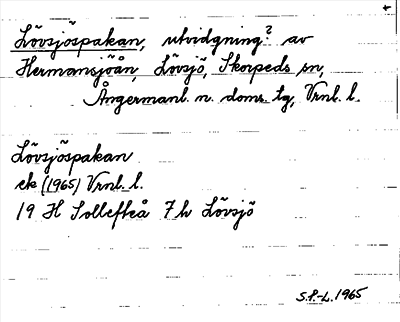 Lövsjöspakan, utvidgning? av
Hermansjöån Lövsjö, Skorpeds sn,
Ångermanl. n. doms. tg, Vrnl. l.
Lövsjöspakan
ek (1965) Vrnl. l.
19 H Sollefteå 7h Lövsjö
S.P.-L. 1965